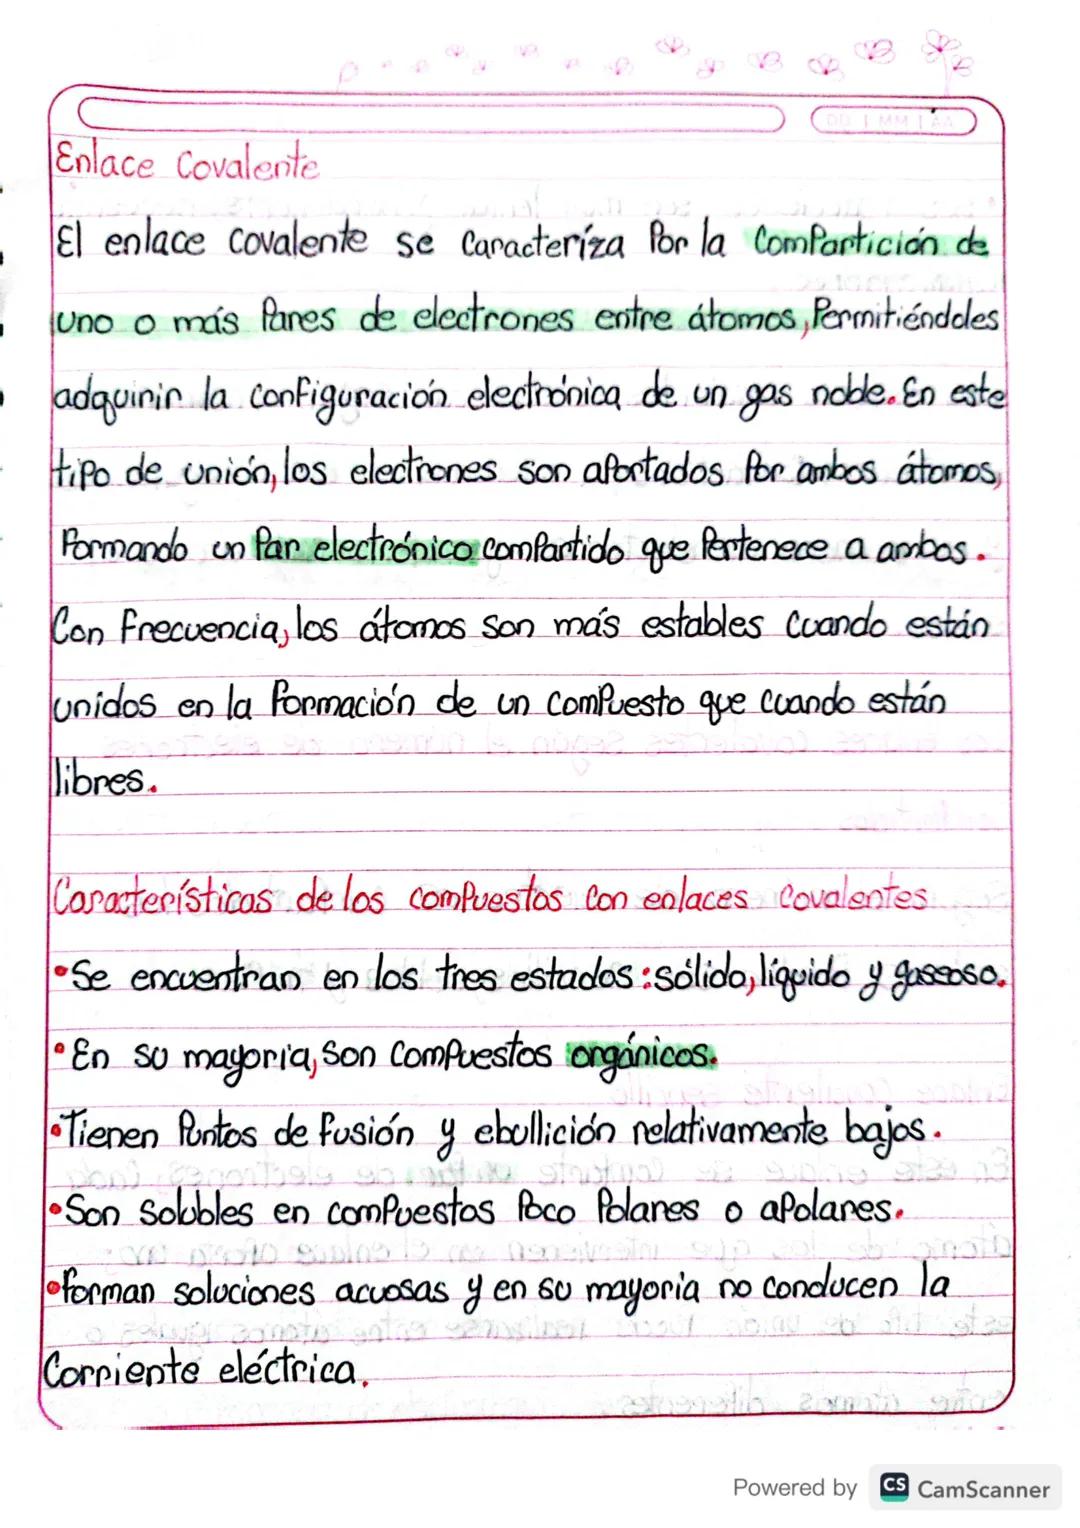 DD | MM | AA
Enlace Covalente
El enlace covalente se caracteríza por la compartición de
uno o más pares de electrones entre átomos, permitiéndoles
adquirir la configuración electrónica de un gas noble. En este
tipo de unión, los electrones son aportados por ambos átomos,
formando un par electrónico compartido que pertenece a ambos.
Con frecuencia, los átomos son más estables cuando están
unidos en la formación de un compuesto que cuando están
libres.
Características de los compuestos con enlaces covalentes
•Se encuentran en los tres estados: sólido, líquido y gaseoso.
•En su mayoria, son compuestos orgánicos.
•Tienen puntos de fusión y ebullición relativamente bajos.
•Son solubles en compuestos poco polares o apolares.
•forman soluciones acuosas y en su mayoria no conducen la
corriente eléctrica.
Powered by CS CamScanner